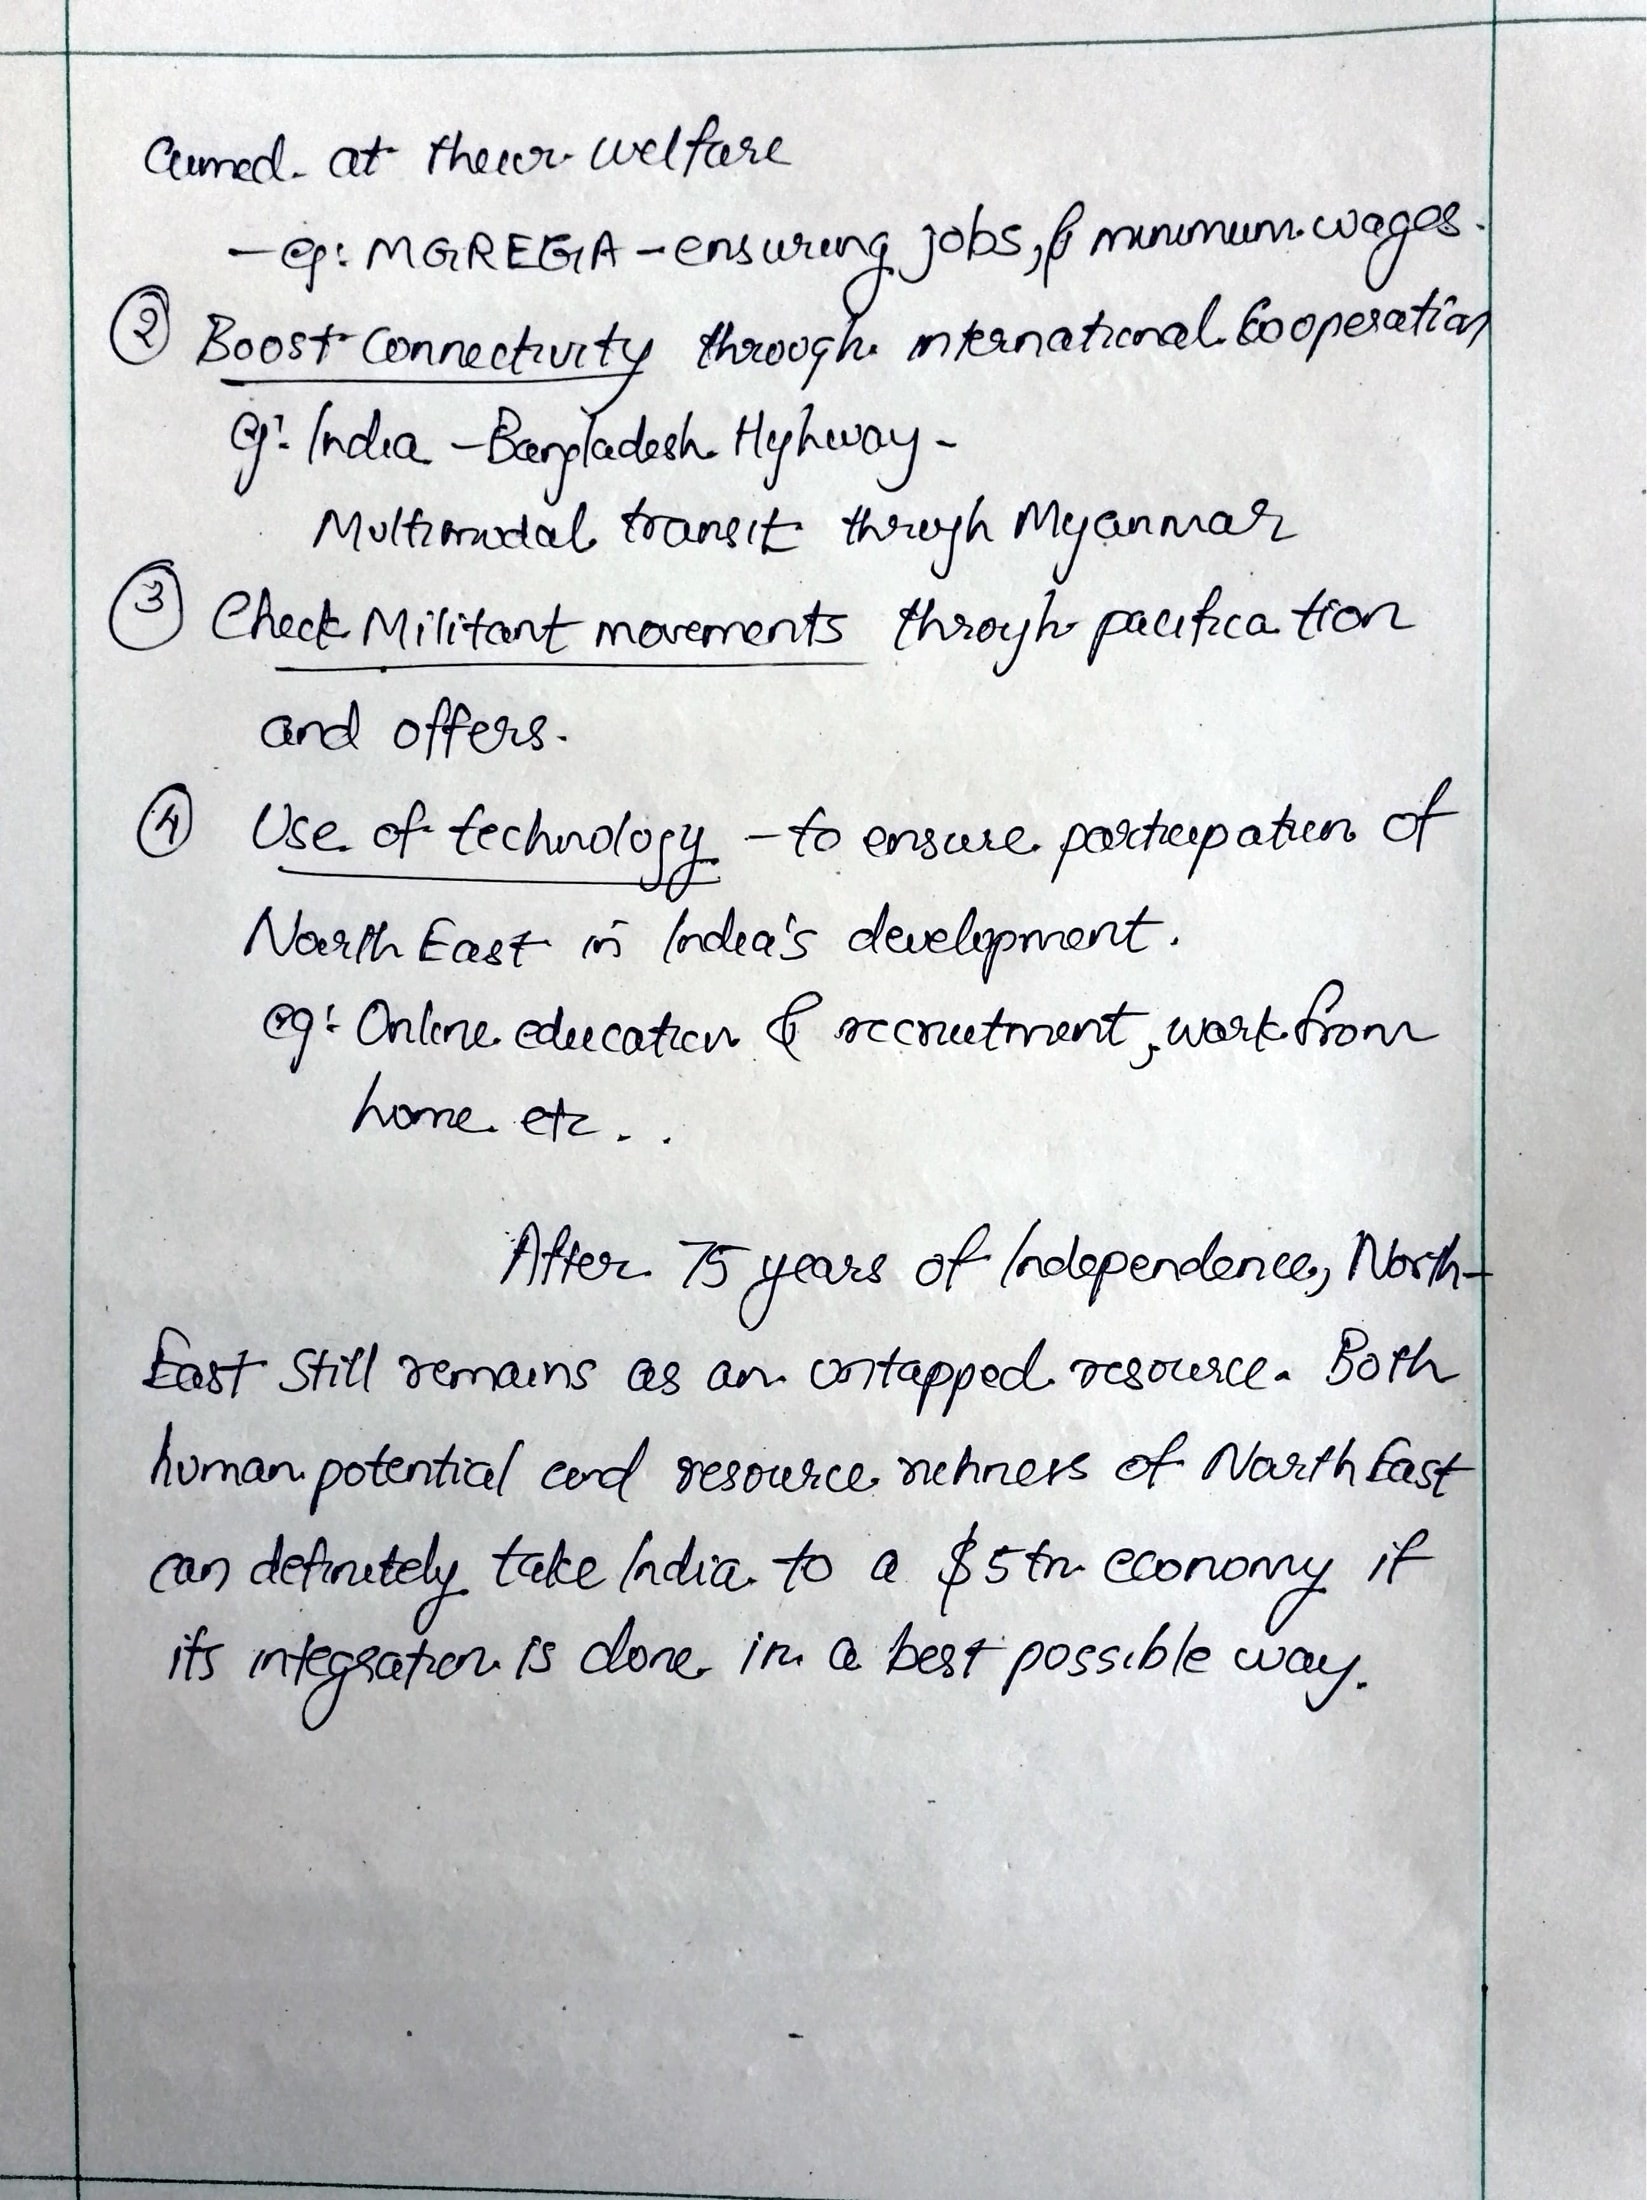 aimed at their welfare
- eg: MGREGA - ensuring jobs, & minimum wages.
② Boost Connectivity through international Cooperation
eg: India - Bangladesh Highway -
Multimodal transit through Myanmar
③ Check Militant movements through pacification
and offers.
④ Use of technology - to ensure participation of
North East in India's development.
eg: Online education & recruitment, work from
home etc..
After 75 years of Independence, North-
East Still remains as an untapped resource. Both
human potential and resource richness of North East
can definitely take India to a $5tn economy if
its integration is done in a best possible way.